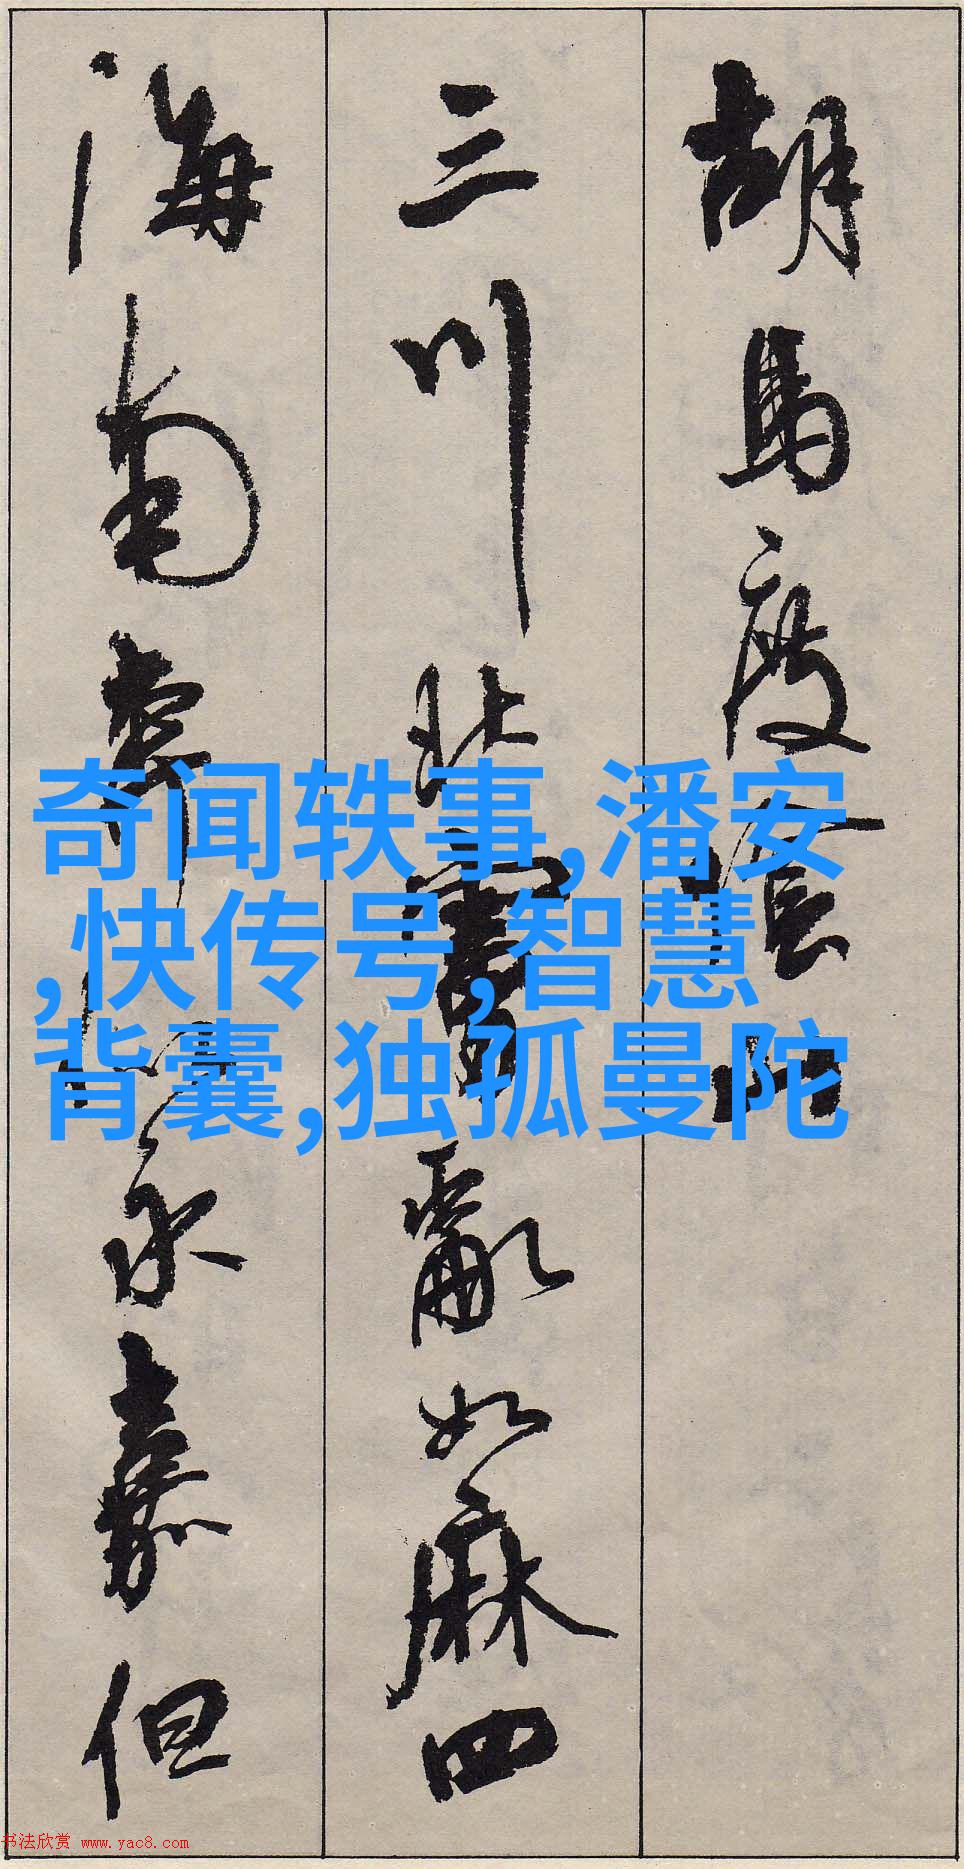 胡馬度陰山
三川北虜亂如麻四
海南奔似永嘉但
奇闻轶事,潘安
,快传号,智慧
背囊,独孤曼陀
书法欣赏 www.yac8.com